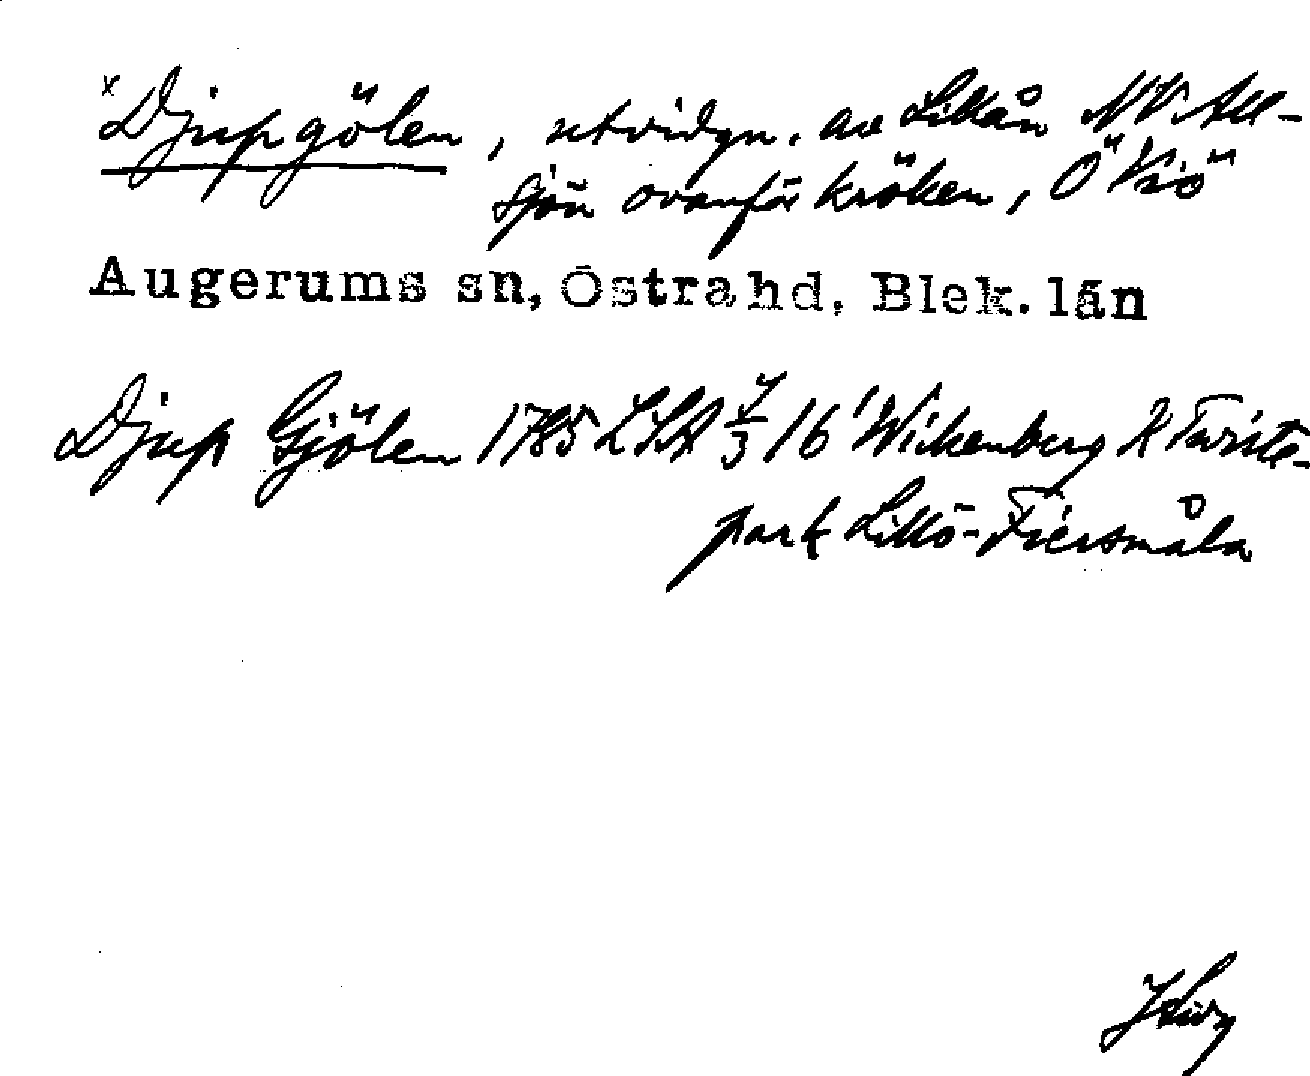 x Djupgölen, utvidgn. av Lillån NV All-
sjön ovanför kröken, Ö"
Augerums sn, Östra hd, Blek. län
Djup Gjölen 1785 LSA 7/3 16' Wikenberg K Twiste-
park Lillö-Fiersmåla